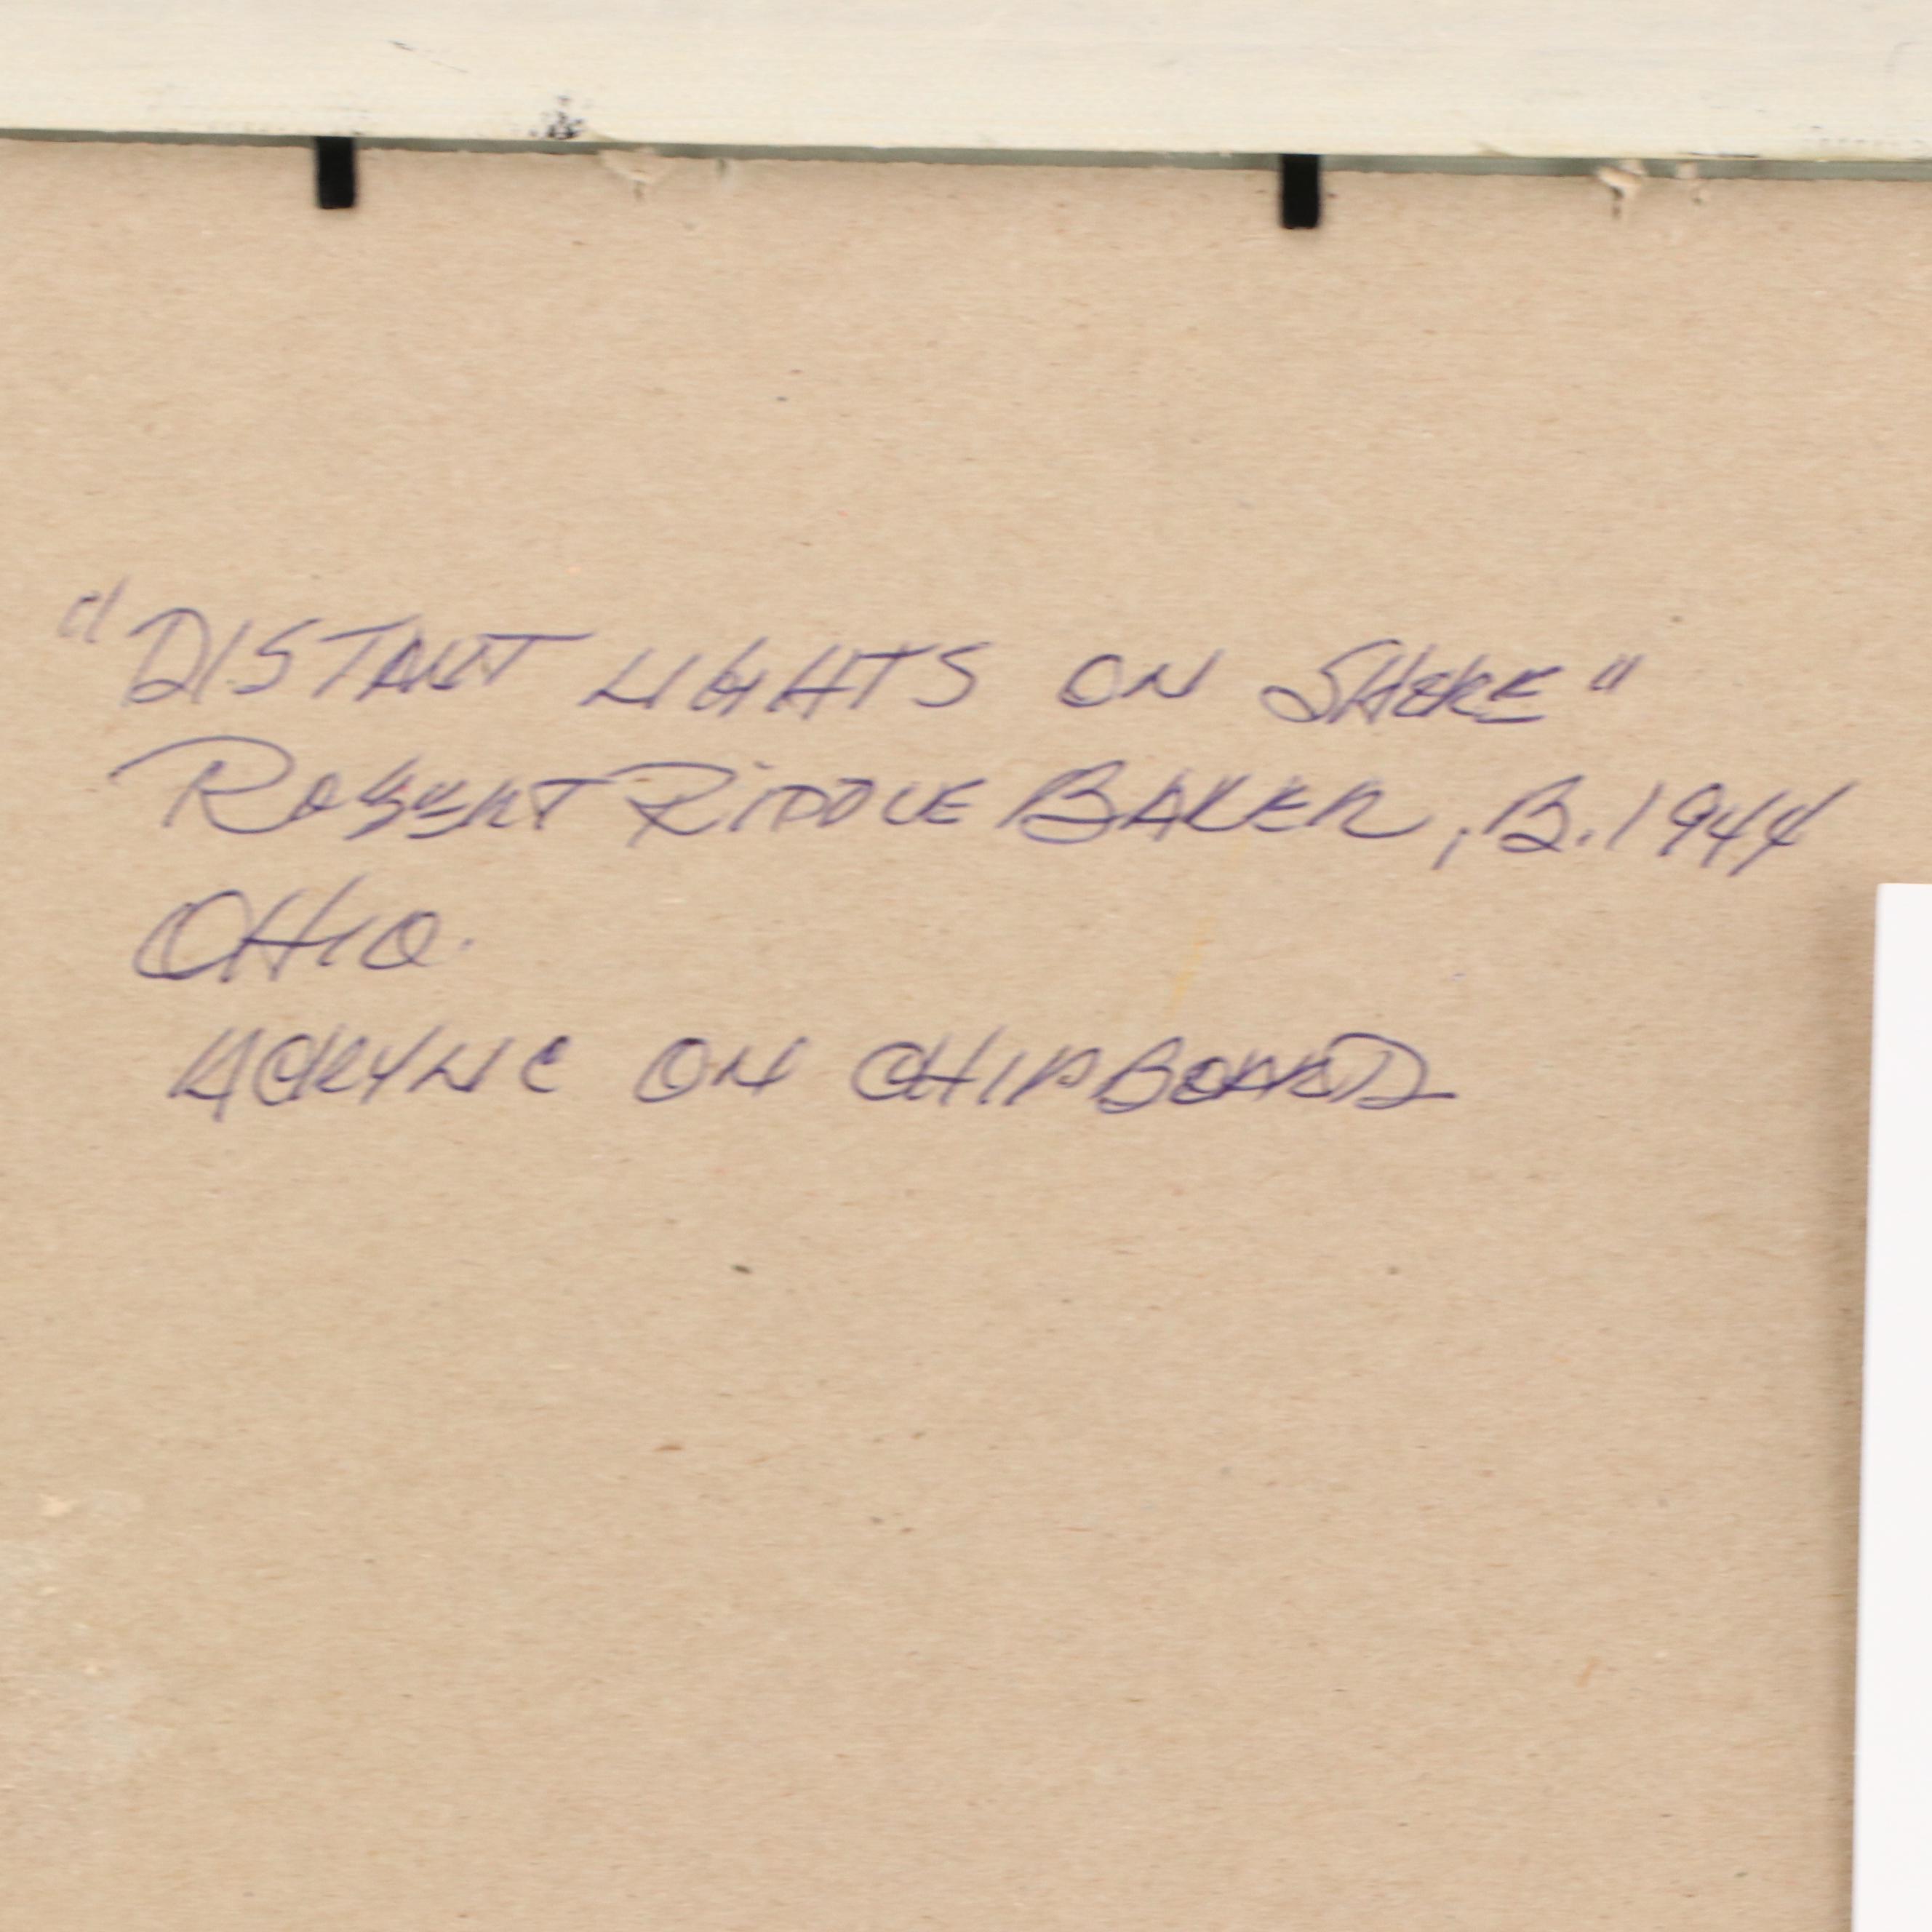 "DISTANT LIGHTS ON SHORE"
ROBERT RIDDLE BAKER, B. 1944
OHIO.
ACRYLIC ON CHIPBOARD